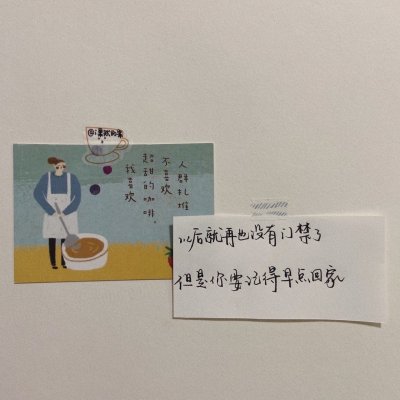 人群扎堆
不喜欢
超甜的咖啡。
我喜欢
以后就再也没有门禁了
但是你要记得早点回家